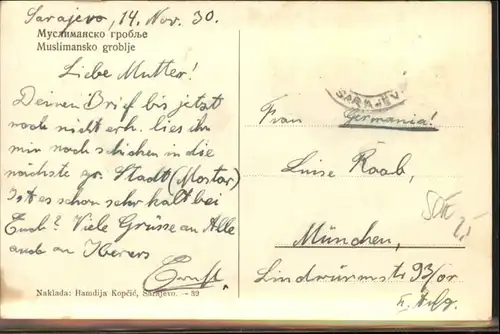 Sarajevo, 14. Nov. 30.
Муслиманско гробље
Muslimansko groblje
Liebe Mutter!
Deinen Brief bis jetzt
noch nicht erh. lies ihn
mir noch schicken in die
nächste gr. Stadt (Mostar)
Ist es schon sehr kalt bei
Euch? Viele Grüsse an Alle
auch an
Ernst.
Naklada: Hamdija Kopčić, Sarajevo. — 39
SARAJEV
Frau Germania!
Luise Raab,
München,
Lindwurmstr 93/0r